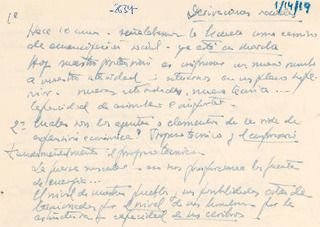 1º -2634- Derivaciones sociales 1/14/19
Hace 10 años - señalábamos la Escuela como camino
de emancipación social - ya está en marcha
Hoy nuestra pretensión es imprimir un nuevo rumbo
a nuestra actividad i situarnos en un plano supe-
rior - nuevas actividades, nueva técnica ...
Capacidad de asimilar e importar -
2º Cuales son los agentes o elementos de la vida de
expansión económica? Progreso técnico y el empresario
Fundamentalmente el progreso técnico
La fuerza muscular - nos proporcionan las fuentes
de energía ...
El nivel de nuestro pueblo, sus posibilidades están de-
terminadas por el nivel de sus hombres, por la
capacidad de sus cerebros!